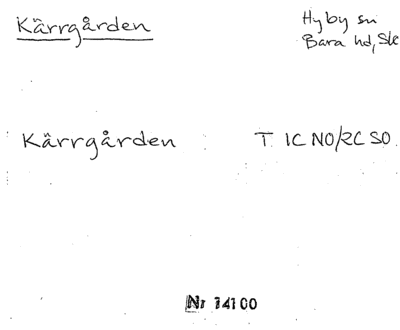 Kärrgården
Hyby sn
Bara hd, Sk
Kärrgården T 1C NO/2C SO
Nr 14100